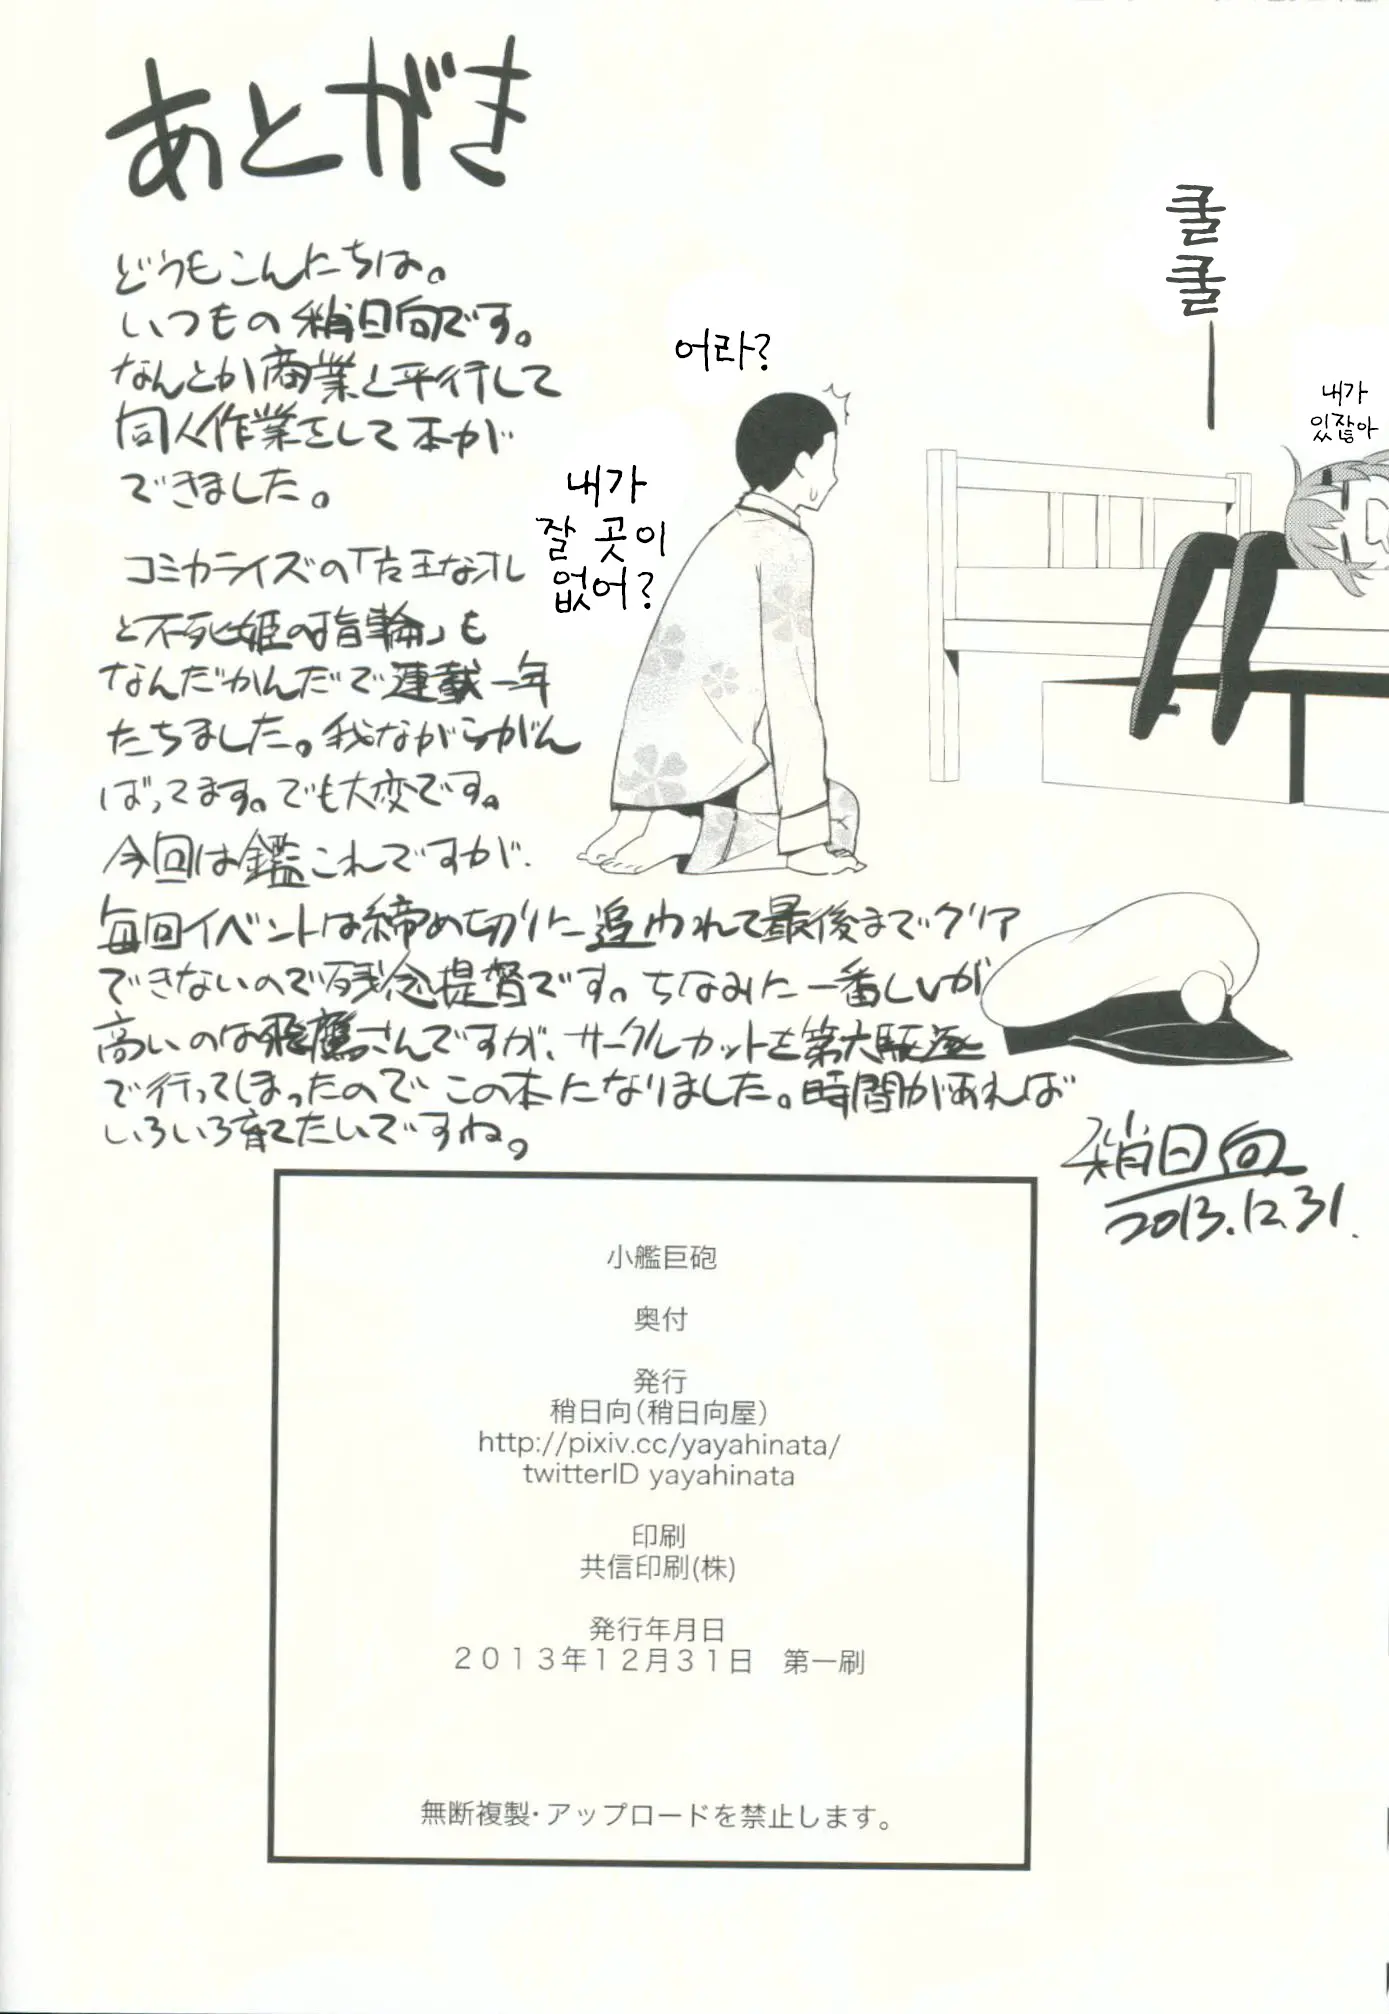 あとがき
どうもこんにちは。
いつもの稍日向です。
なんとか商業と平行して
同人作業をして本が
できました。
コミカライズの「左王なオレ
と不死姫の指輪」も
なんだかんだで連載一年
たちました。我ながらがん
ばってます。でも大変です。
今回は鑑これですが、
毎回イベントは締め切りに追われて最後までクリア
できないので残念提督です。ちなみに一番Lvが
高いのは飛鷹さんですが、サークルカットを第六駆逐
で行ってしまったのでこの本になりました。時間があれば
いろいろ育てたいですね。
稍日向
2013.12.31.
쿨
쿨
어라?
내가
있잖아
내가
잘 곳이
없어?
小艦巨砲
奥付
発行
稍日向(稍日向屋)
http://pixiv.cc/yayahinata/
twitterID yayahinata
印刷
共信印刷(株)
発行年月日
2013年12月31日 第一刷
無断複製・アップロードを禁止します。